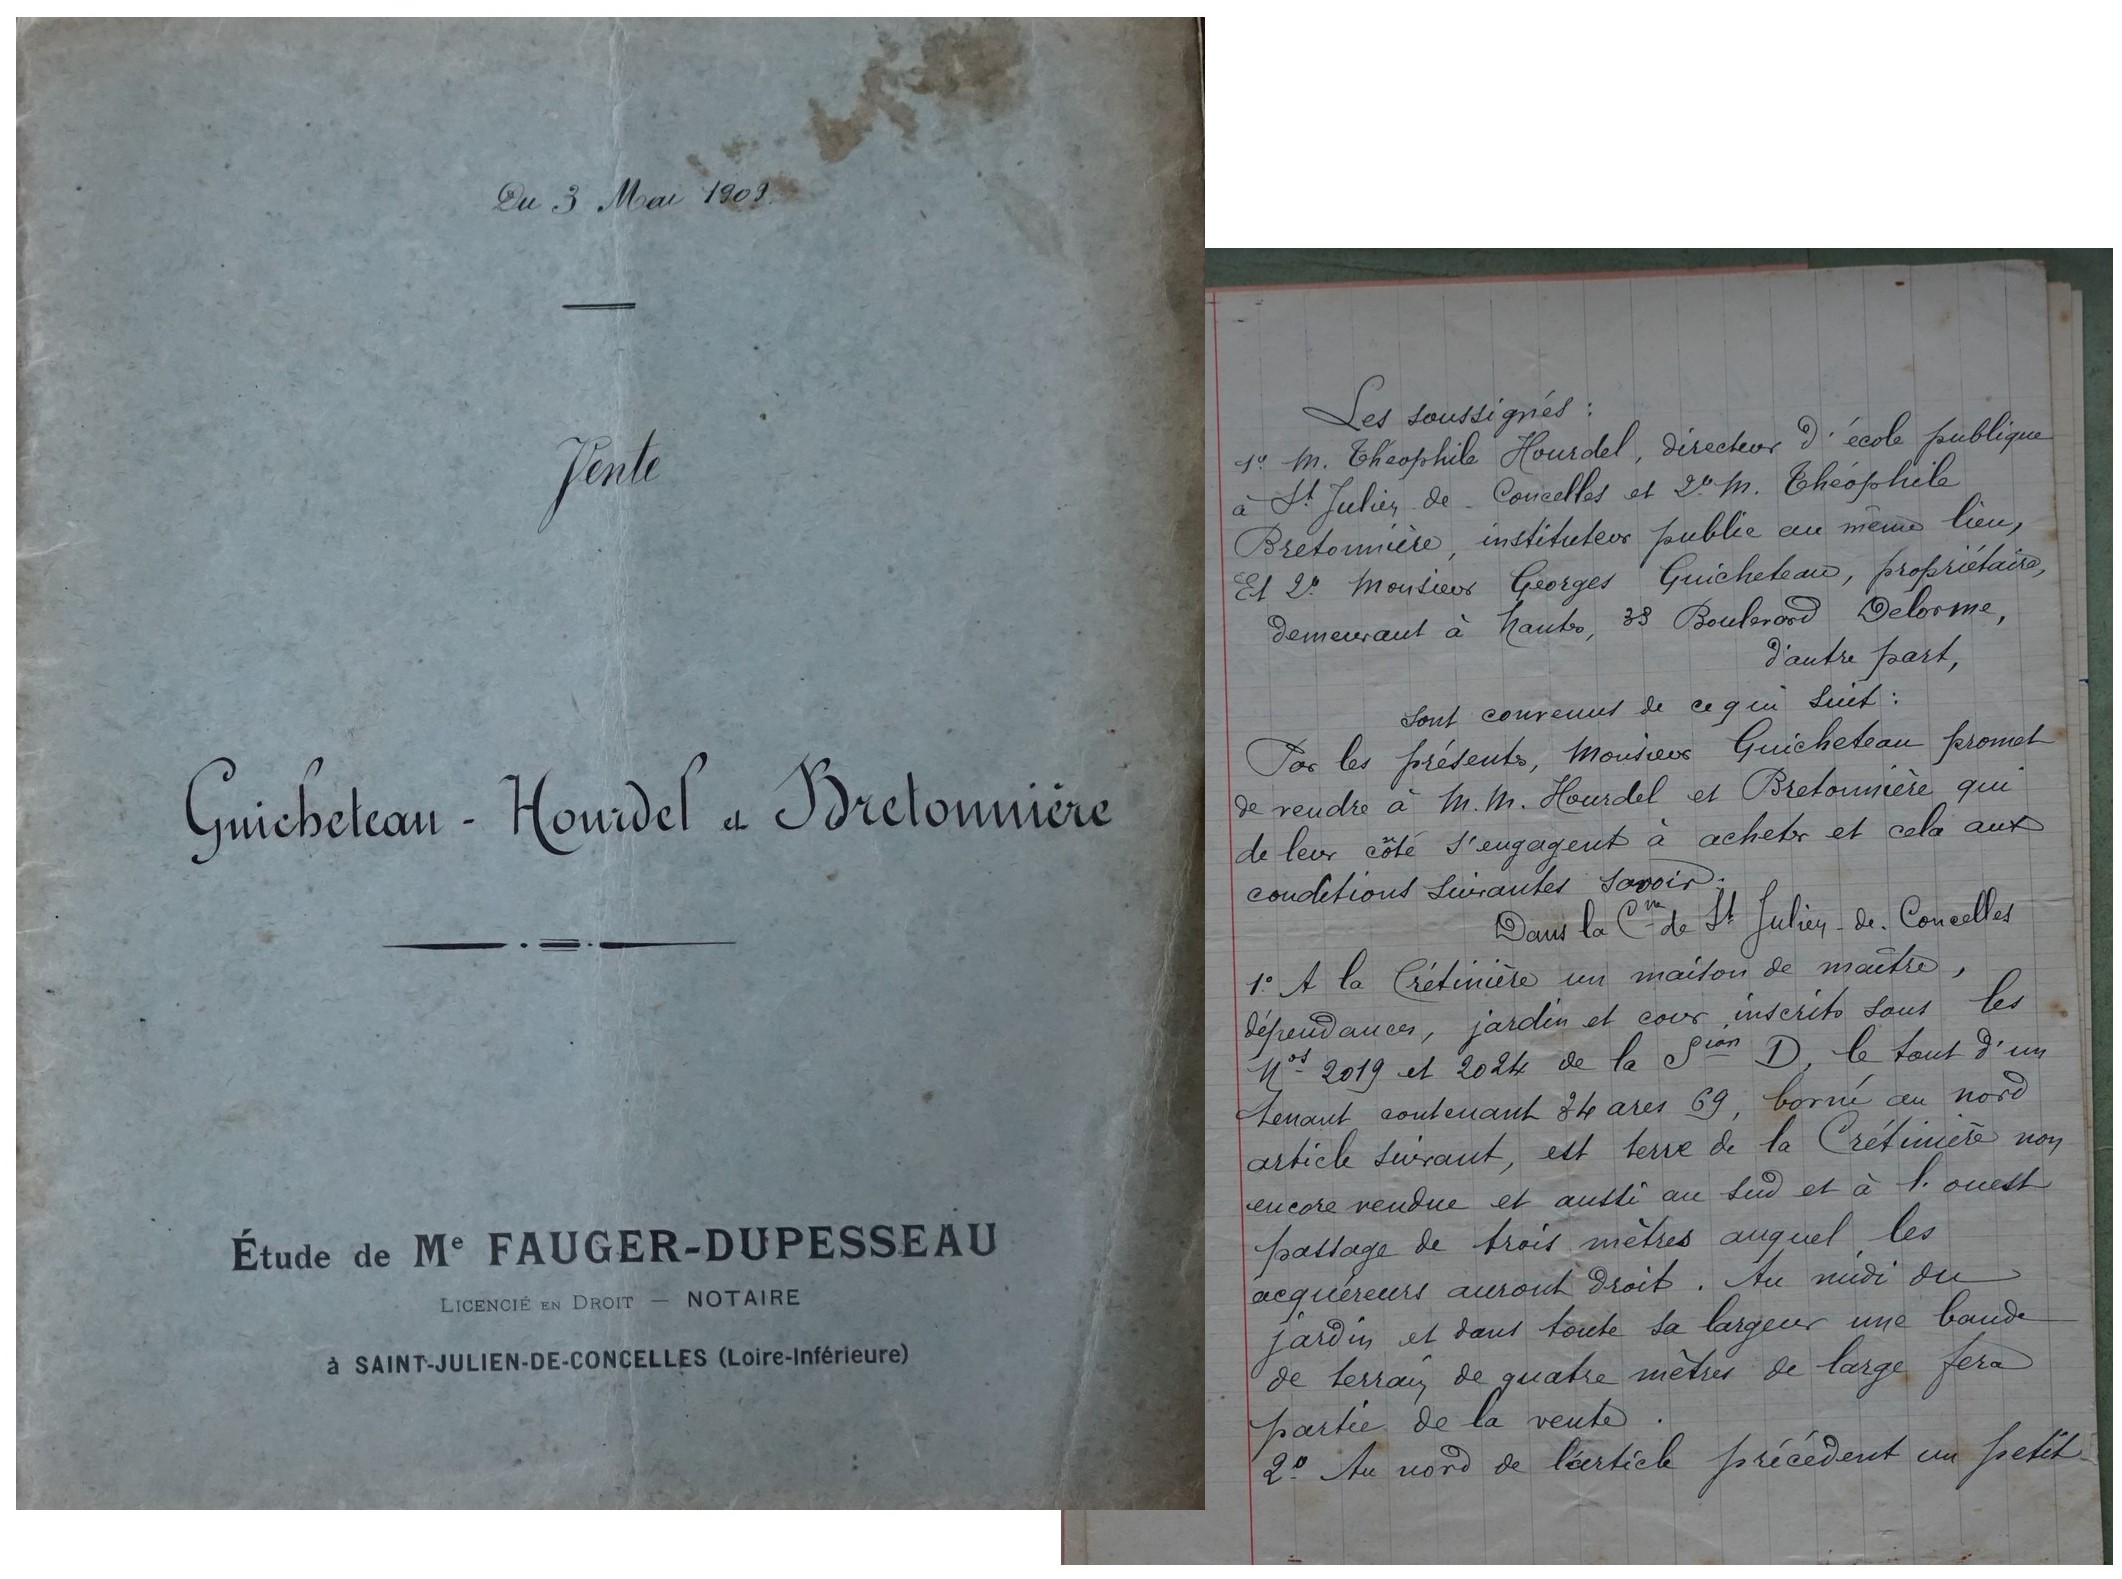 Du 3 Mai 1909.
Vente
Guicheteau - Hourdel et Bretonnière
Étude de Me FAUGER-DUPESSEAU
LICENCIÉ EN DROIT — NOTAIRE
à SAINT-JULIEN-DE-CONCELLES (Loire-Inférieure)
Les soussignés :
1º M. Théophile Hourdel, directeur d'école publique
à St Julien-de-Concelles et 2º M. Théophile
Bretonnière, instituteur public au même lieu,
Et 2º Monsieur Georges Guicheteau, propriétaire,
demeurant à Nantes, 38 Boulevard Delorme,
d'autre part,
sont convenus de ce qui suit :
Par les présentes, Monsieur Guicheteau promet
de vendre à M.M. Hourdel et Bretonnière qui
de leur côté s'engagent à acheter et cela aux
conditions suivantes savoir :
Dans la Cne de St Julien-de-Concelles
1º A la Crétinière un maison de maître,
dépendances, jardin et cour, inscrits sous les
Nos 2019 et 2024 de la Sion D, le tout d'un
tenant contenant 34 ares 69, borné au nord
article suivant, est terre de la Crétinière non
encore vendue et aussi au sud et à l'ouest
passage de trois mètres auquel les
acquéreurs auront droit. Au midi du
jardin et dans toute sa largeur une bande
de terrain de quatre mètres de large fera
partie de la vente.
2º Au nord de l'article précédent un petit